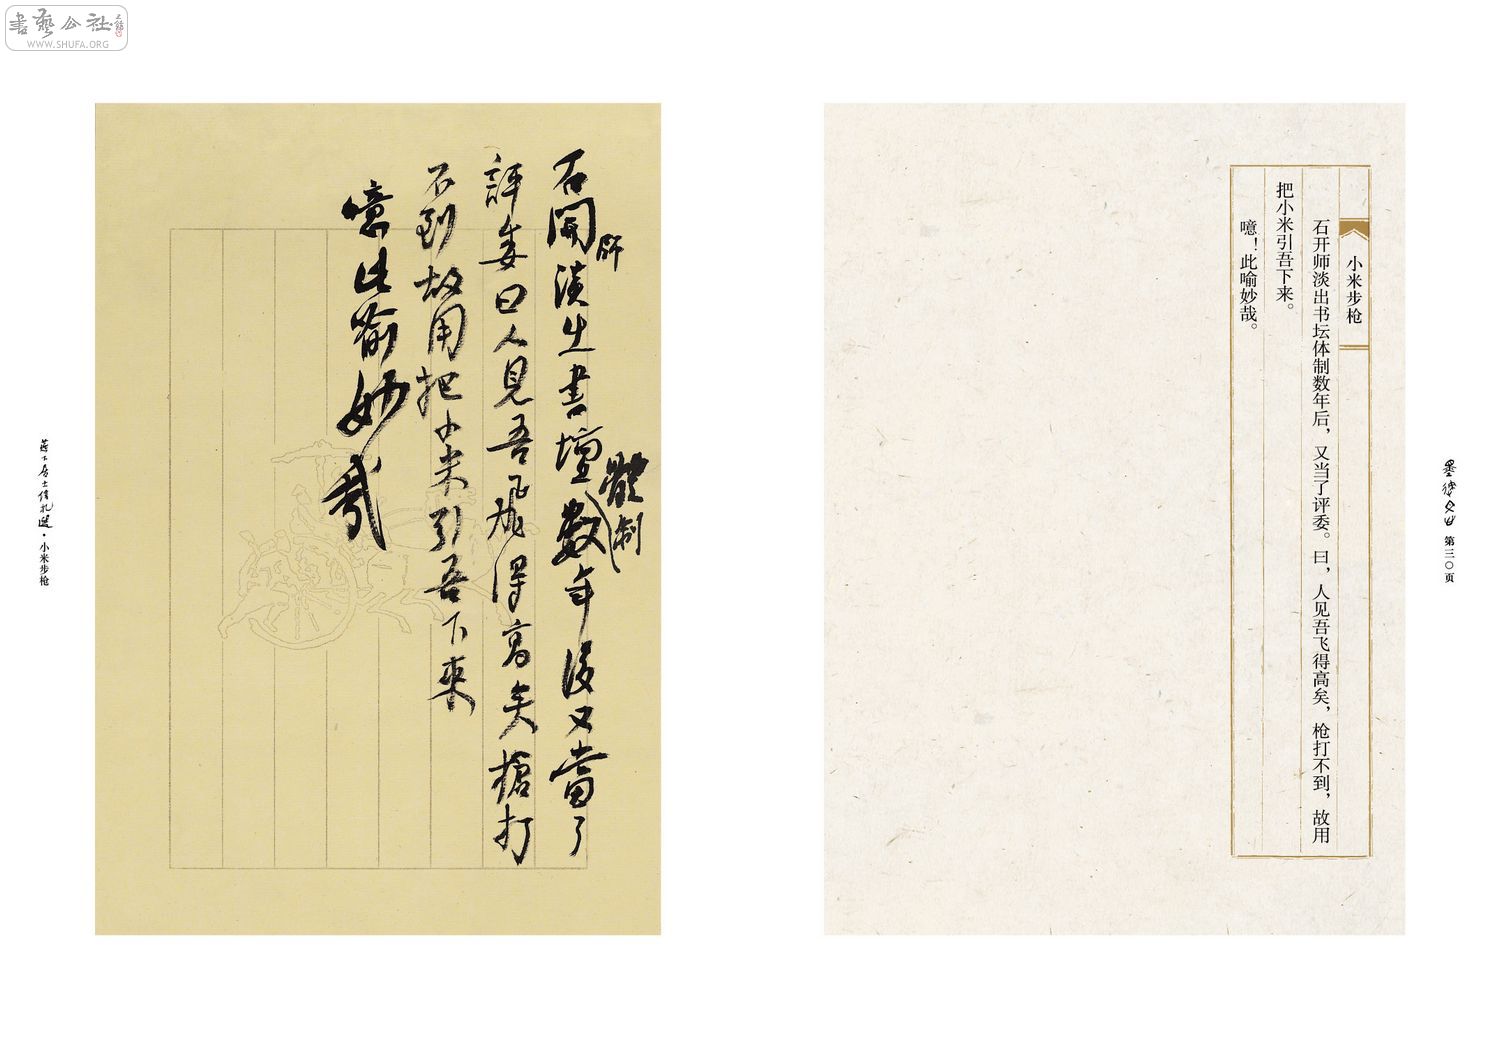 書藝公社
WWW.SHUFA.ORG
石開師淡出書壇體制數年後又當了
評委曰人見吾飛得高矣槍打
不到故用把小米引吾下來
噫此喻妙哉
小米步枪
石开师淡出书坛体制数年后，又当了评委。曰，人见吾飞得高矣，枪打不到，故用
把小米引吾下来。
噫！此喻妙哉。
·小米步枪
第三〇页